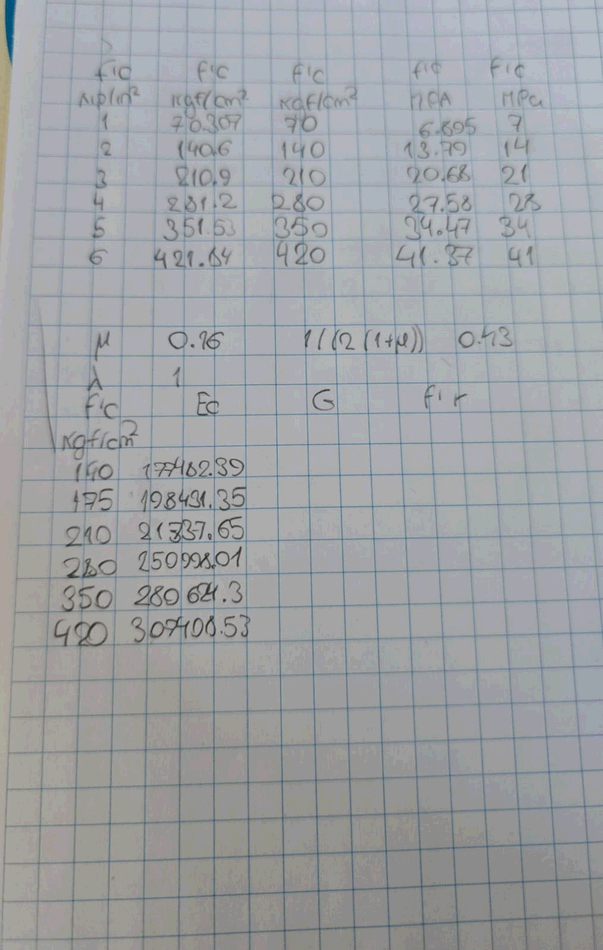 f'c f'c f'c f'c f'c
kip/in² kgf/cm² kgf/cm² MPA MPa
1 70.307 70 6.895 7
2 140.6 140 13.79 14
3 210.9 210 20.68 21
4 281.2 280 27.58 28
5 351.53 350 34.47 34
6 421.84 420 41.37 41
μ 0.16 1/(2(1+μ)) 0.43
λ 1
f'c Ec G f'r
kgf/cm²
140 177482.39
175 198431.35
210 21737.65
280 250998.01
350 280624.3
420 307408.53